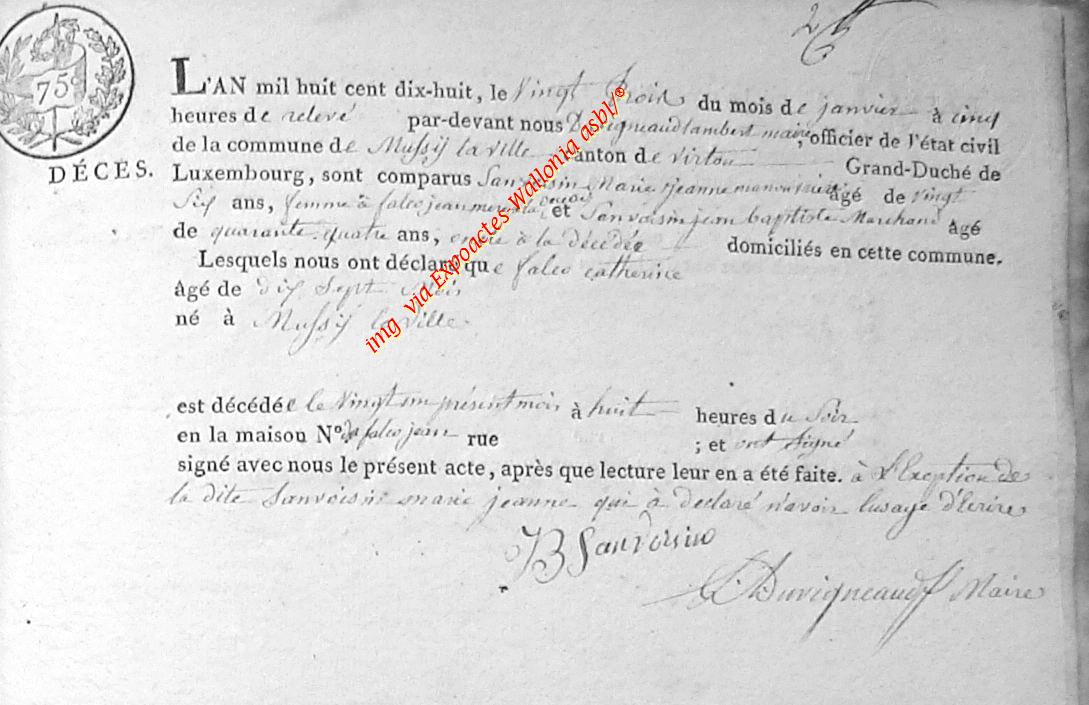 75c
DÉCES.
L'AN mil huit cent dix-huit, le vingt trois du mois de janvier à cinq
heures de relevé par-devant nous Duvigneaud lambert maire, officier de l'état civil
de la commune de Mussÿ la ville canton de virton Grand-Duché de
Luxembourg, sont comparus Sanvoisin Marie jeanne âgé de vingt
Six ans, femme à falco jean et Sanvoisin jean baptiste Marchand âgé
de quarante quatre ans, à la décédée domiciliés en cette commune.
Lesquels nous ont déclaré que falco catherine
âgé de dix Sept Mois
né à Mussÿ la ville
est décédée le vingt un présent mois à huit heures du Soir
en la maison N° de falco jean rue ; et ont Signé
signé avec nous le présent acte, après que lecture leur en a été faite. à L'Exeption de
la dite Sanvoisin marie jeanne qui a declaré n'avoir lusage d'Ecrire
JB Sanvoisin
Duvigneaud Maire
img via Expoactes Wallonia asbl/®